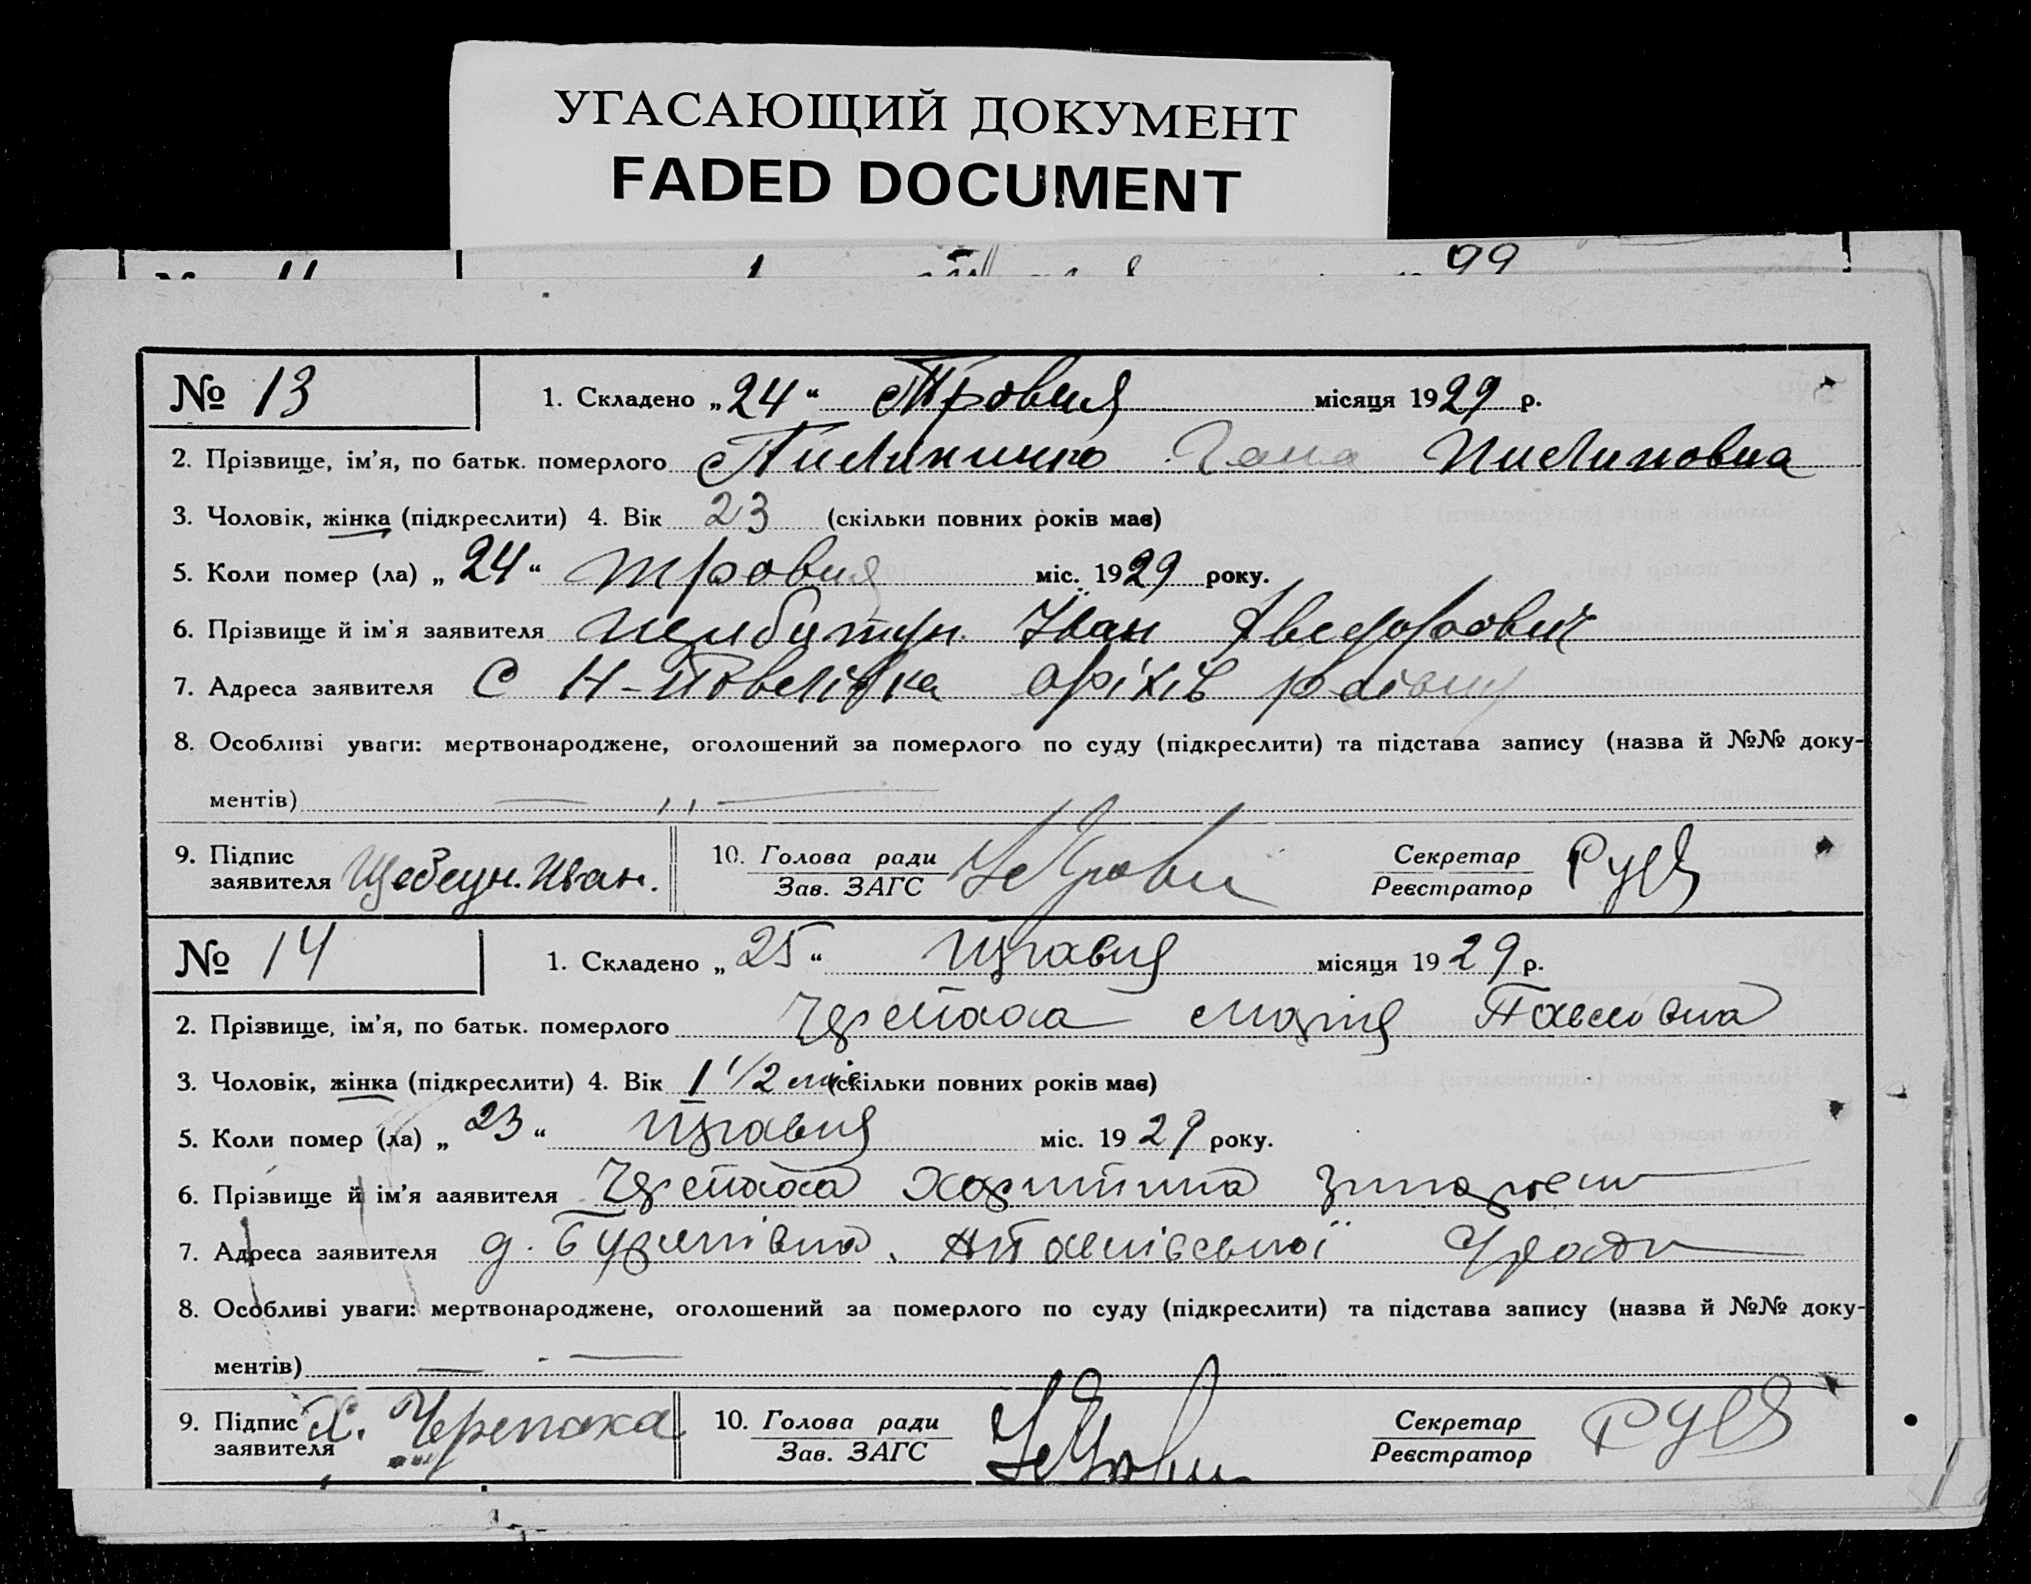 УГАСАЮЩИЙ ДОКУМЕНТ
FADED DOCUMENT
99
№ 13 1. Складено „24“ Травня місяця 1929 р.
2. Прізвище, ім'я, по батьк. померлого Гана
3. Чоловік, жінка (підкреслити) 4. Вік 23 (скільки повних років має)
5. Коли помер (ла) „24“ травня міс. 1929 року.
6. Прізвище й ім'я заявителя Іван
7. Адреса заявителя С Н-Павлівка Оріхів
8. Особливі уваги: мертвонароджене, оголошений за померлого по суду (підкреслити) та підстава запису (назва й №№ доку-
ментів)
9. Підпис заявителя Иван. 10. Голова ради Зав. ЗАГС Секретар Реєстратор
№ 14 1. Складено „25“ травня місяця 1929 р.
2. Прізвище, ім'я, по батьк. померлого Черепаха Марія Павлівна
3. Чоловік, жінка (підкреслити) 4. Вік 1 1/2 (скільки повних років має)
5. Коли помер (ла) „23“ травня міс. 1929 року.
6. Прізвище й ім'я заявителя Черепаха Харитина
7. Адреса заявителя д.
8. Особливі уваги: мертвонароджене, оголошений за померлого по суду (підкреслити) та підстава запису (назва й №№ доку-
ментів)
9. Підпис заявителя Х. Черепаха 10. Голова ради Зав. ЗАГС Секретар Реєстратор